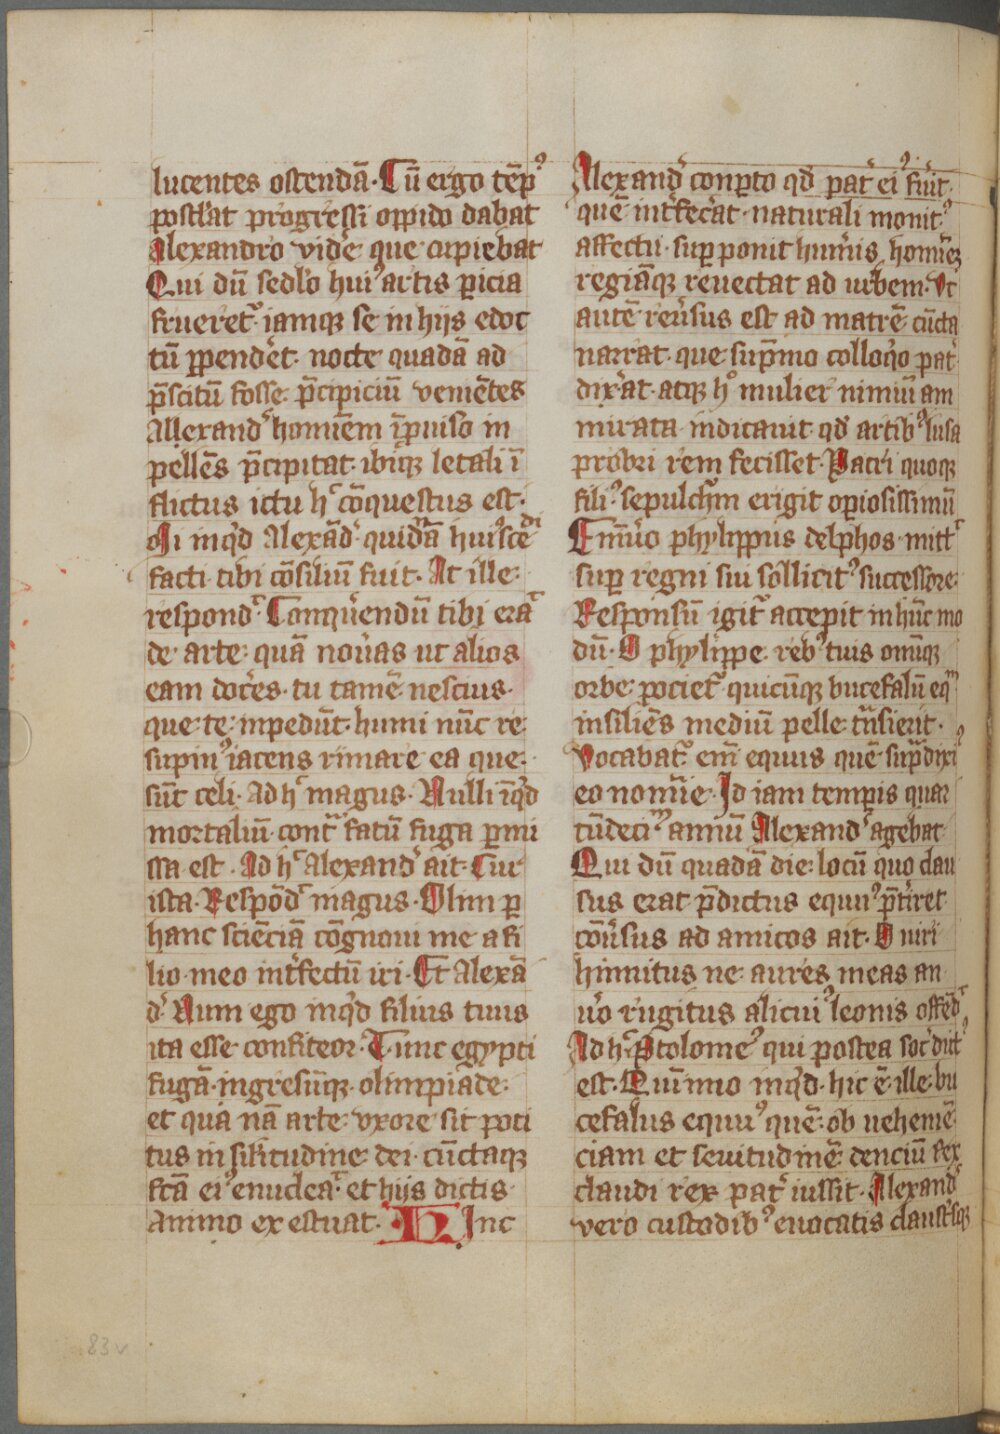 lucentes ostendā. Cū ergo tēpꝰ
postlat progressi oppido dabat
Alexandro videˀ que cupiebat
Qui dū sedlo huiꝰ artis pericia
frueretˀ. iamqꝫ se in hijs edoc
tū ꝑpendˀet. nocte quadā ad
p̄scitū fosse p̄cipiciū veniētes
Allexandˀ hominem īpuiso in
pellēs p̄cipitat. ibiqꝫ letali ī
flictus ictu hͨ cōquestus est.
Qi inqd Alexādˀ quidnā huiꝰscedi
facti tibi cōsiliū fuit. At ille
respondˀ Conquˀendū tibi eratˀ
de arte quā noūas ut alios
eam docˀes. tu tamē nescius.
que te inpedūt. humi nūc re
supinꝰ iacens rimare ea que
sūt celi. Ad hͨ magus. Nulli īqd
mortaliū. contˀ fatū fuga ꝑmi
ssa est. Ad hͨ Alexandˀ ait. Cur
ista. Respōdˀ magus. Olim ꝑ
hanc sciēciā cōgnoui me a fi
lio meo intˀfectū iri. Et Alexā
dˀ Num ego inqd filius tuus
ita esse confiteor. Tunc egypti
fugā. ingresūqꝫ olimpiade
et qua nā arte vxore sit poti
tus in silitudine dei. cūctaqꝫ
fcā eiꝰ enucleatˀ. et hijs dictis
animo exestuat. Hinc
Alexandˀ conperto qd patˀ eiꝰ fuˀit.
quē intˀfecˀat. naturali monitꝰ
affectu. supponit humˀis hominē
regiāqꝫ reuectat ad urbem. Vt
autē reuˀsus est ad matrē cūcta
narrat. que supˀmo colloqo patˀ
dixˀat. atqꝫ hͦ mulier nimiū am
mirata indicauit qd artibꝰ lusa
probri rem fecisset. Patri quoqꝫ
filiꝰ sepulchm erigit opiosissimū
Emūo phylippus delphos mittˀ
super regni sui sollicitꝰ successore
Responsū igitˀ accepit in hūc mo
dū. O phylippe rebꝰ tuis omīqꝫ
orbe pocietˀ quicūqꝫ bucefalū eqm
insiliēs mediū pelle tˀnsierit.
Vocabatˀ enī equus quē supˀdixiꝰ
eo nomīe. Id iam temperis quar
tūdecimˀ annū Alexandˀ agebat
Qui dū quadā die locū quo clau
sus erat p̄dictus equuꝰ p̄tˀiret
cōuˀsus ad amicos ait. O uiri
hinnitus ne aures meas an
uˀo rugitus alicuiꝰ leonis offēdˀ
Ad hͨ. Ptolomeꝰ qui postea socˀ dictꝰ
est. Quīnimo inqd. hic ē ille bu
cefalus equuꝰ quē ob uehemē
ciam et seuitudinē denciū rex
claudi rex patˀ iussit. Alexandˀ
vero custodibꝰ euocatis claustˀsqꝫ
83v